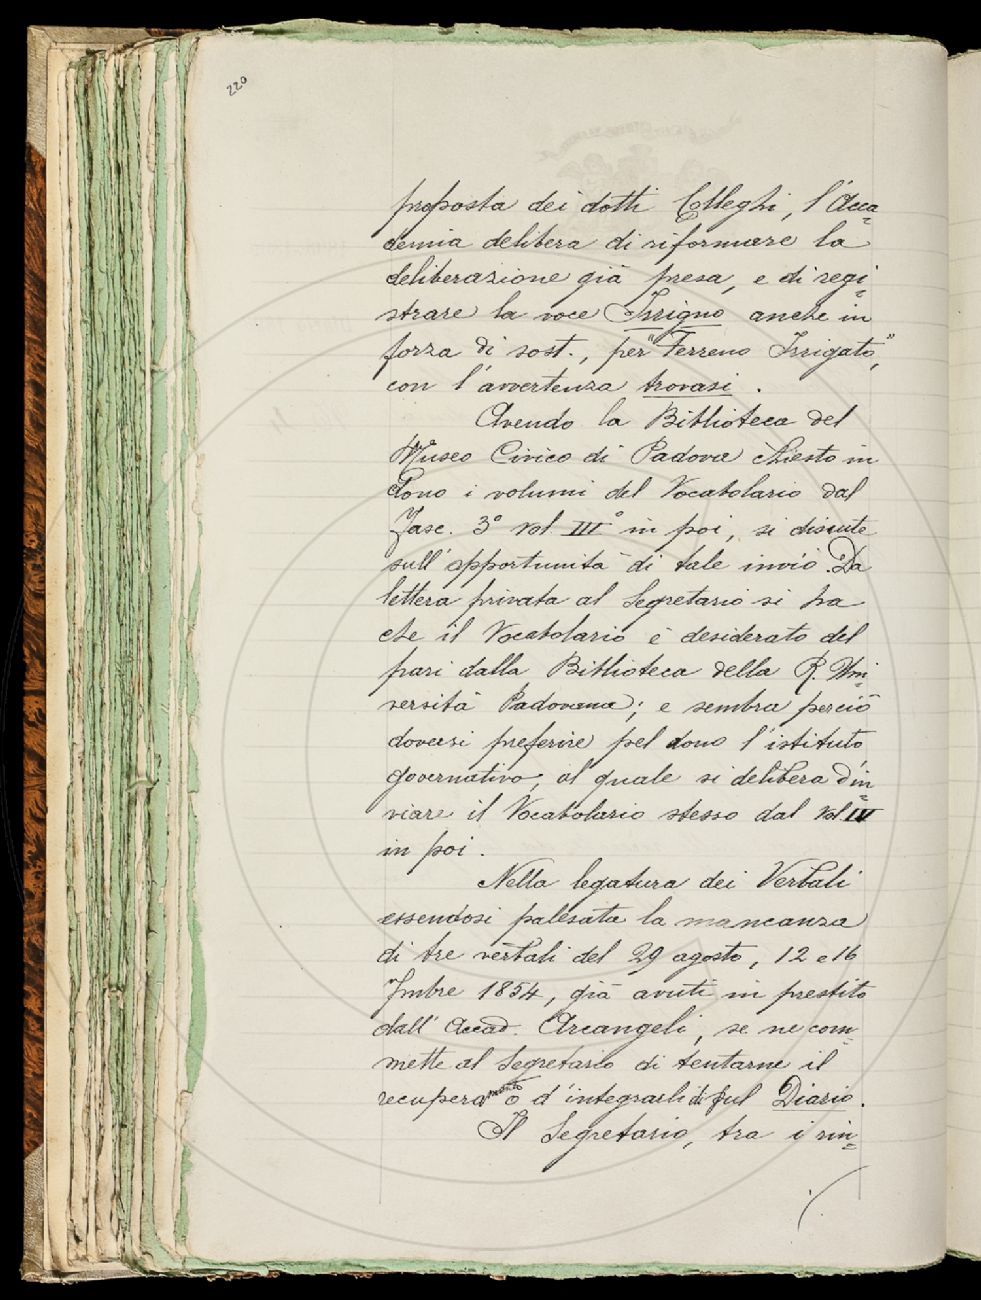 220
proposta dei dotti Colleghi, l'Acca=
demia delibera di riformare la
deliberazione già presa, e di regi=
strare la voce Irrigno anche in
forza di sost., per "Terreno Irrigato",
con l'avvertenza trovasi.
Avendo la Biblioteca del
Museo Civico di Padova chiesto in
dono i volumi del Vocabolario dal
Fasc. 3° vol. III° in poi, si discute
sull'opportunità di tale invio. Da
lettera privata al Segretario si ha
che il Vocabolario è desiderato del
pari dalla Biblioteca della R. Uni=
versità Padovana; e sembra perciò
doversi preferire pel dono l'istituto
governativo, al quale si delibera d'in=
viare il Vocabolario stesso dal Vol. IV
in poi.
Nella legatura dei Verbali
essendosi palesata la mancanza
di tre verbali del 29 agosto, 12 e 16
7mbre 1854, già avuti in prestito
dall'Accad. Arcangeli, se ne com=
mette al Segretario di tentarne il
recuperamento o d'integrarli sul Diario.
Il Segretario, tra i rin=